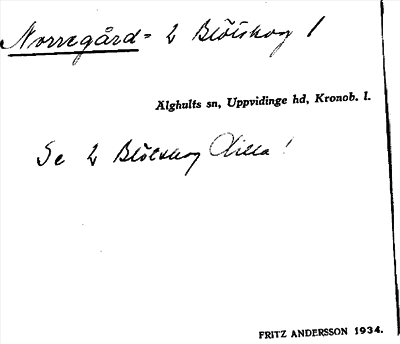 Norregård = 2 Blötskog 1
Älghults sn, Uppvidinge hd, Kronob. l.
Se 2 Blötskog Lilla!
FRITZ ANDERSSON 1934.